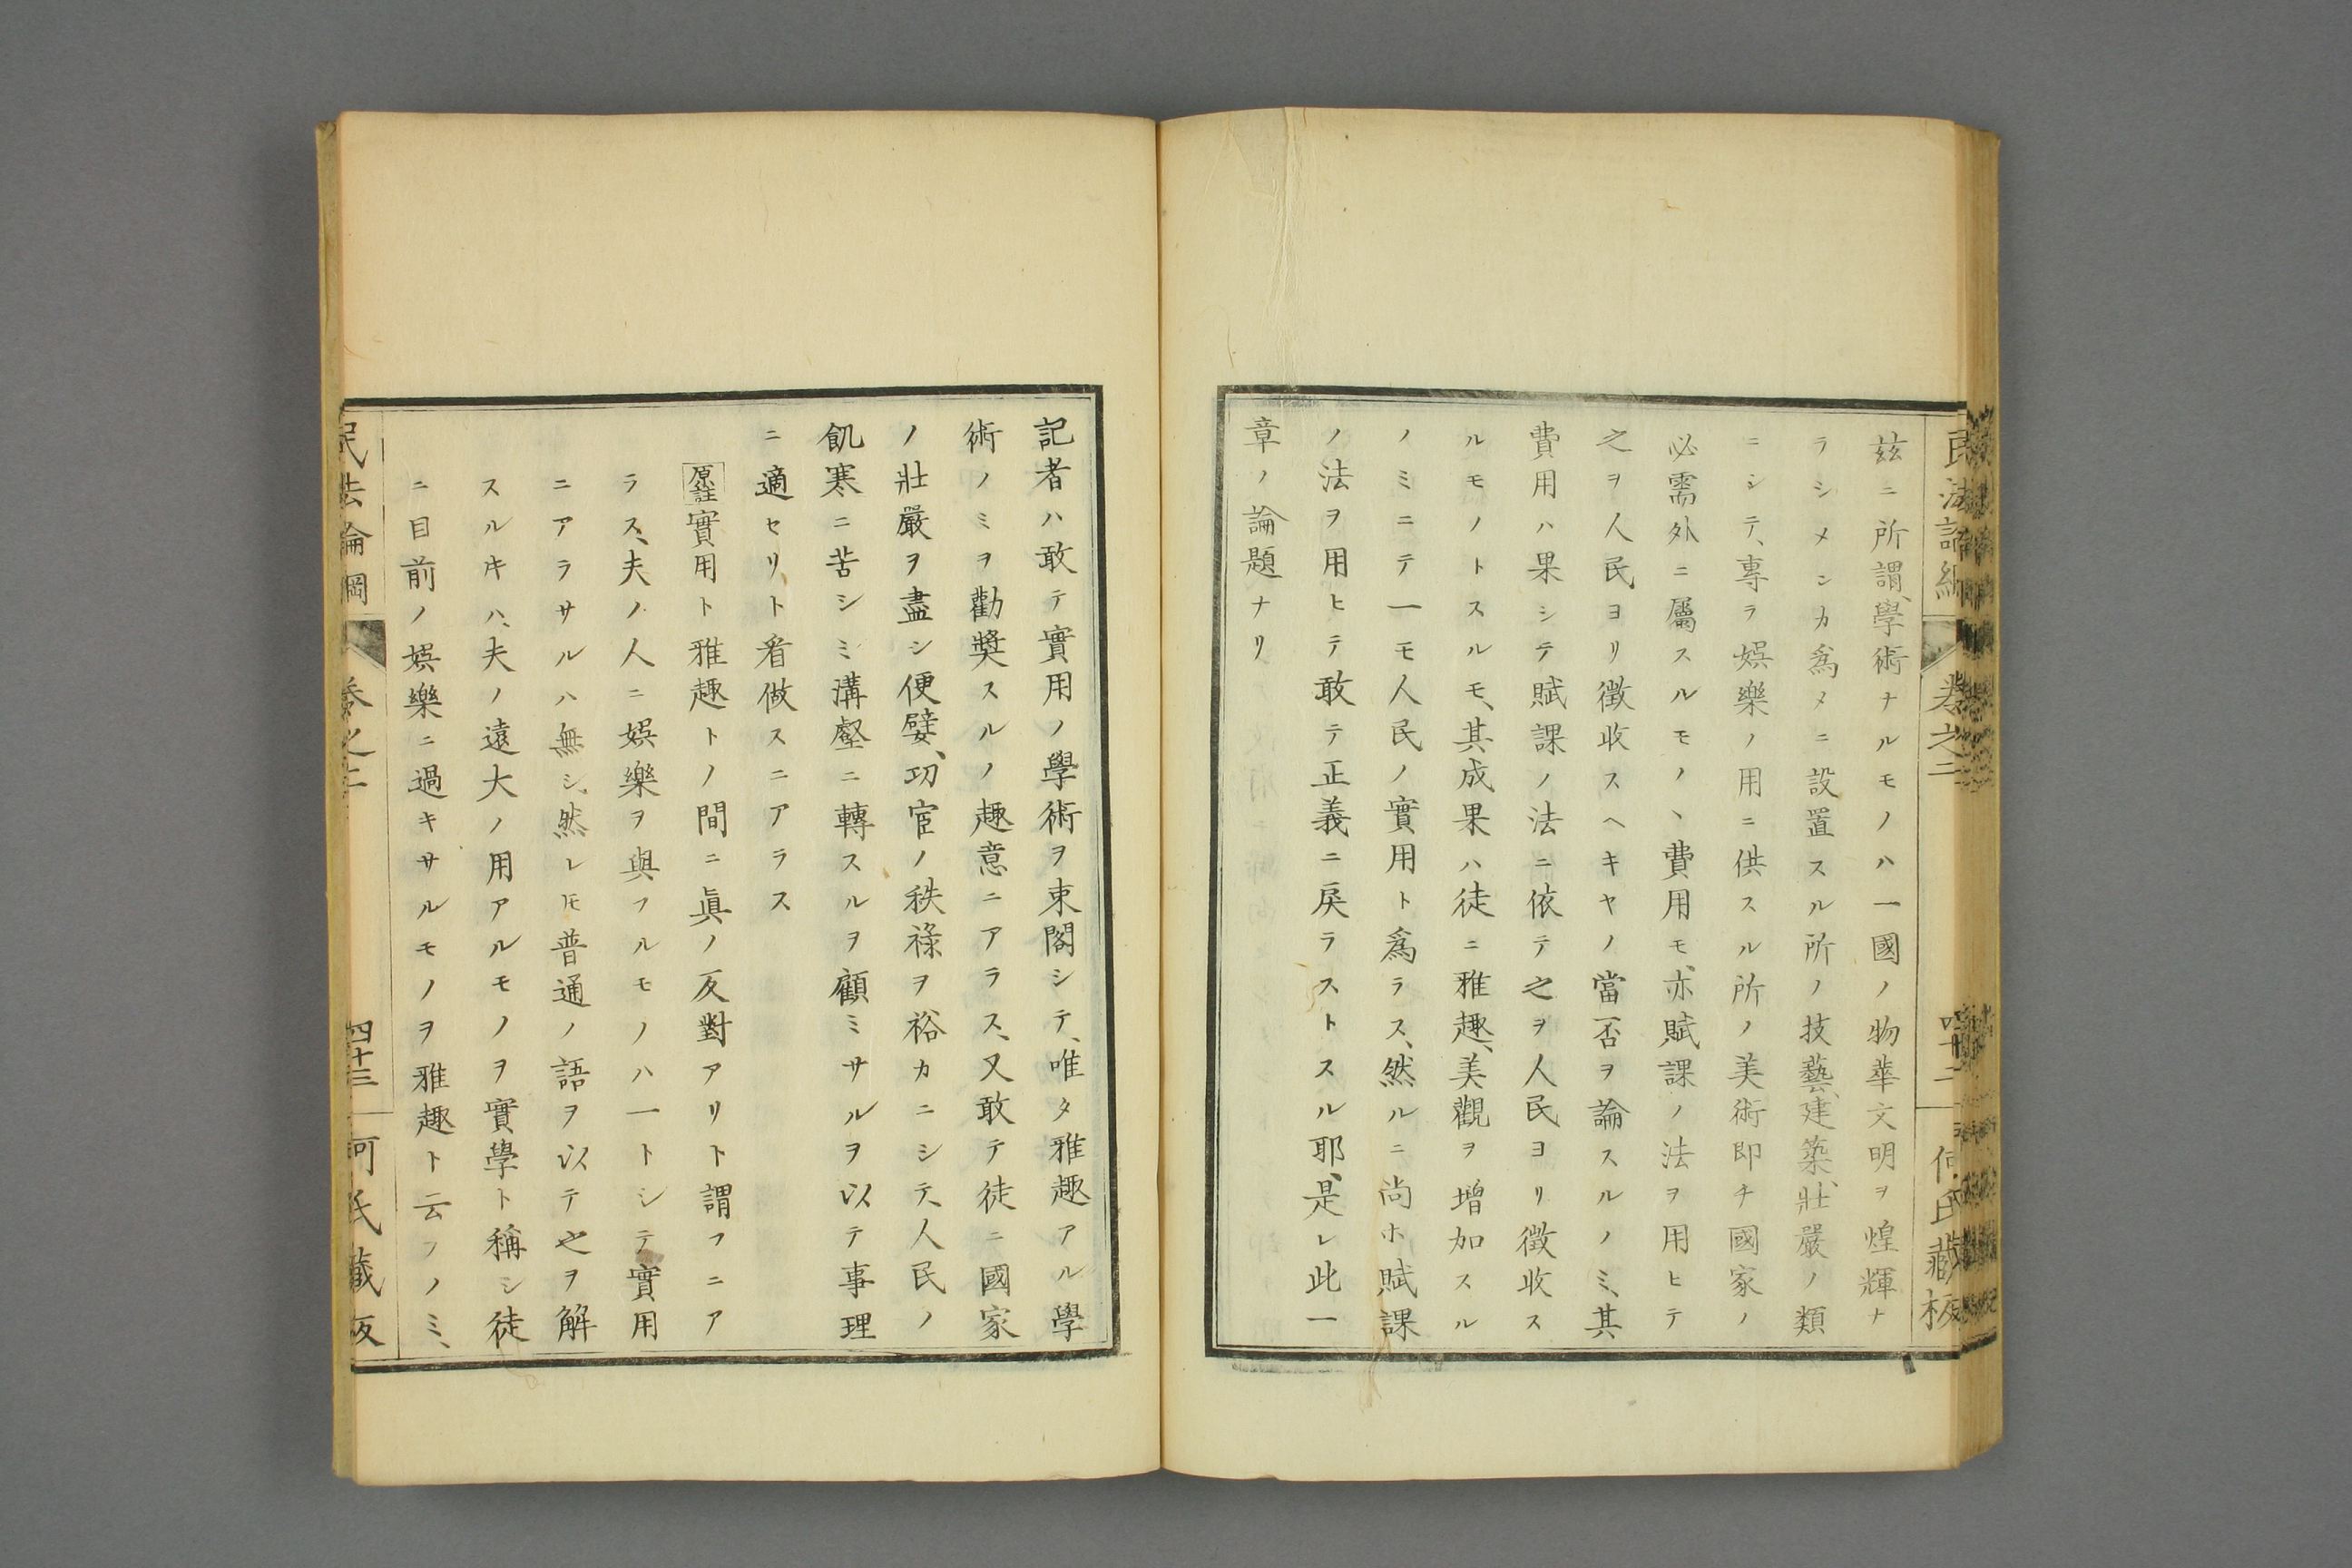 茲ニ所謂、學術ナルモノハ一國ノ物華文明ヲ煌輝ナ
ラシメンカ爲メニ設置スル所ノ技藝、建築、壯嚴ノ類
ニシテ、專ラ娯樂ノ用ニ供スル所ノ美術即チ國家ノ
必需外ニ屬スルモノヽ費用モ、亦賦課ノ法ヲ用ヒテ
之ヲ人民ヨリ徴收スヘキヤノ當否ヲ論スルノミ、其
費用ハ果シテ賦課ノ法ニ依テ之ヲ人民ヨリ徴收ス
ルモノトスルモ、其成果ハ徒ニ雅趣、美觀ヲ增加スル
ノミニテ一モ人民ノ實用ト爲ラス、然ルニ尚ホ賦課
ノ法ヲ用ヒテ敢テ正義ニ戻ラストスル耶、是レ此一
章ノ論題ナリ
記者ハ敢テ實用ノ學術ヲ束閣シテ、唯タ雅趣アル學
術ノミヲ勸奬スルノ趣意ニアラス、又敢テ徒ニ國家
ノ壯嚴ヲ盡シ便嬖、功宦ノ秩祿ヲ裕カニシテ、人民ノ
飢寒ニ苦シミ溝壑ニ轉スルヲ顧ミサルヲ以テ事理
ニ適セリト看做スニアラス
原註 實用ト雅趣トノ間ニ眞ノ反對アリト謂フニア
ラス、夫ノ人ニ娯樂ヲ與フルモノハ一トシテ實用
ニアラサルハ無シ、然レ𪜈普通ノ語ヲ以テ之ヲ解
スルキハ、夫ノ遠大ノ用アルモノヲ實學ト稱シ徒
ニ目前ノ娯樂ニ過キサルモノヲ雅趣ト云フノミ、
民法論綱 卷之二 四十三 何氏藏板